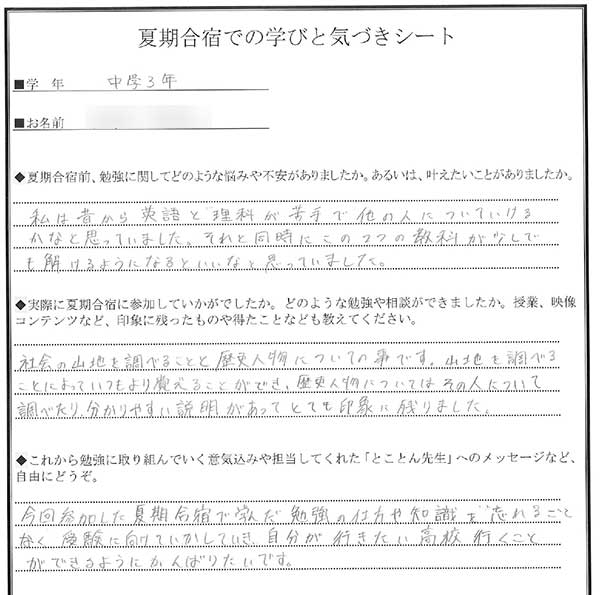 夏期合宿での学びと気づきシート
■学 年 中学3年
■お名前
◆夏期合宿前、勉強に関してどのような悩みや不安がありましたか。あるいは、叶えたいことがありましたか。
私は昔から英語と理科が苦手で他の人についていける
かなと思っていました。それと同時にこの2つの教科が少しで
も解けるようになるといいなと思っていました。
◆実際に夏期合宿に参加していかがでしたか。どのような勉強や相談ができましたか。授業、映像
コンテンツなど、印象に残ったものや得たことなども教えてください。
社会の山地を調べることと歴史人物についての事です。山地を調べる
ことによっていつもより覚えることができ、歴史人物についてはその人について
調べたり、分かりやすい説明があってとても印象に残りました。
◆これから勉強に取り組んでいく意気込みや担当してくれた「とことん先生」へのメッセージなど、
自由にどうぞ。
今回参加した夏期合宿で学んだ勉強の仕方や知識を忘れること
なく受験に向けていかしていき、自分が行きたい高校行くこと
ができるようにがんばりたいです。